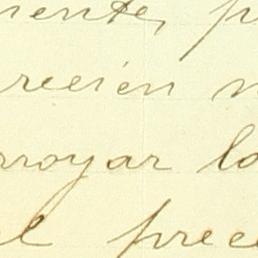 mente, p
recién n
rroyar lo
el prece